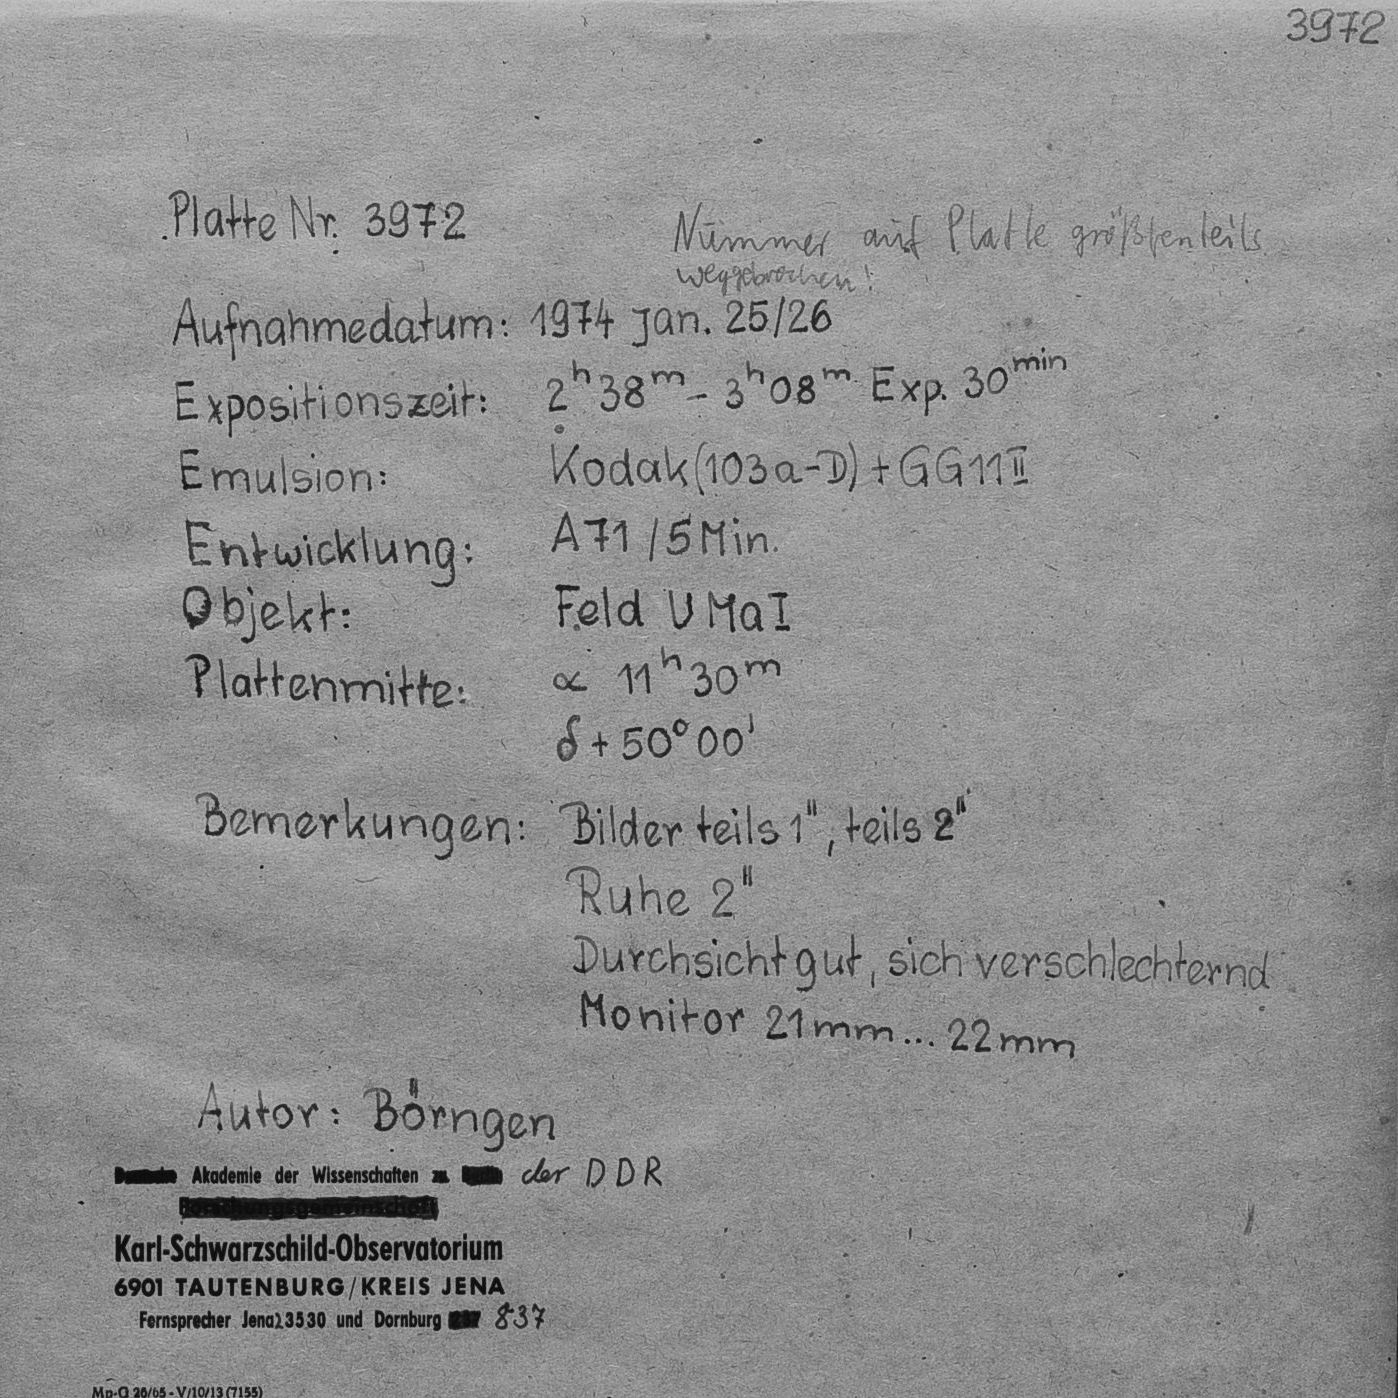 3972
Platte Nr. 3972
Nummer auf Platte größtenteils
weggebrochen!
Aufnahmedatum: 1974 Jan. 25/26
Expositionszeit: 2ʰ38ᵐ – 3ʰ08ᵐ Exp. 30ᵐⁱⁿ
Emulsion: Kodak (103a-D) + GG11 II
Entwicklung: A71 / 5 Min.
Objekt: Feld U Ma I
Plattenmitte: α 11ʰ30ᵐ
δ + 50° 00'
Bemerkungen: Bilder teils 1", teils 2"
Ruhe 2"
Durchsicht gut, sich verschlechternd
Monitor 21mm... 22mm
Autor: Börngen
Akademie der Wissenschaften der DDR
Forschungsgemeinschaft
Karl-Schwarzschild-Observatorium
6901 TAUTENBURG/KREIS JENA
Fernsprecher Jena 23530 und Dornburg 837
Mp-G 26/65 - V/10/13 (7155)